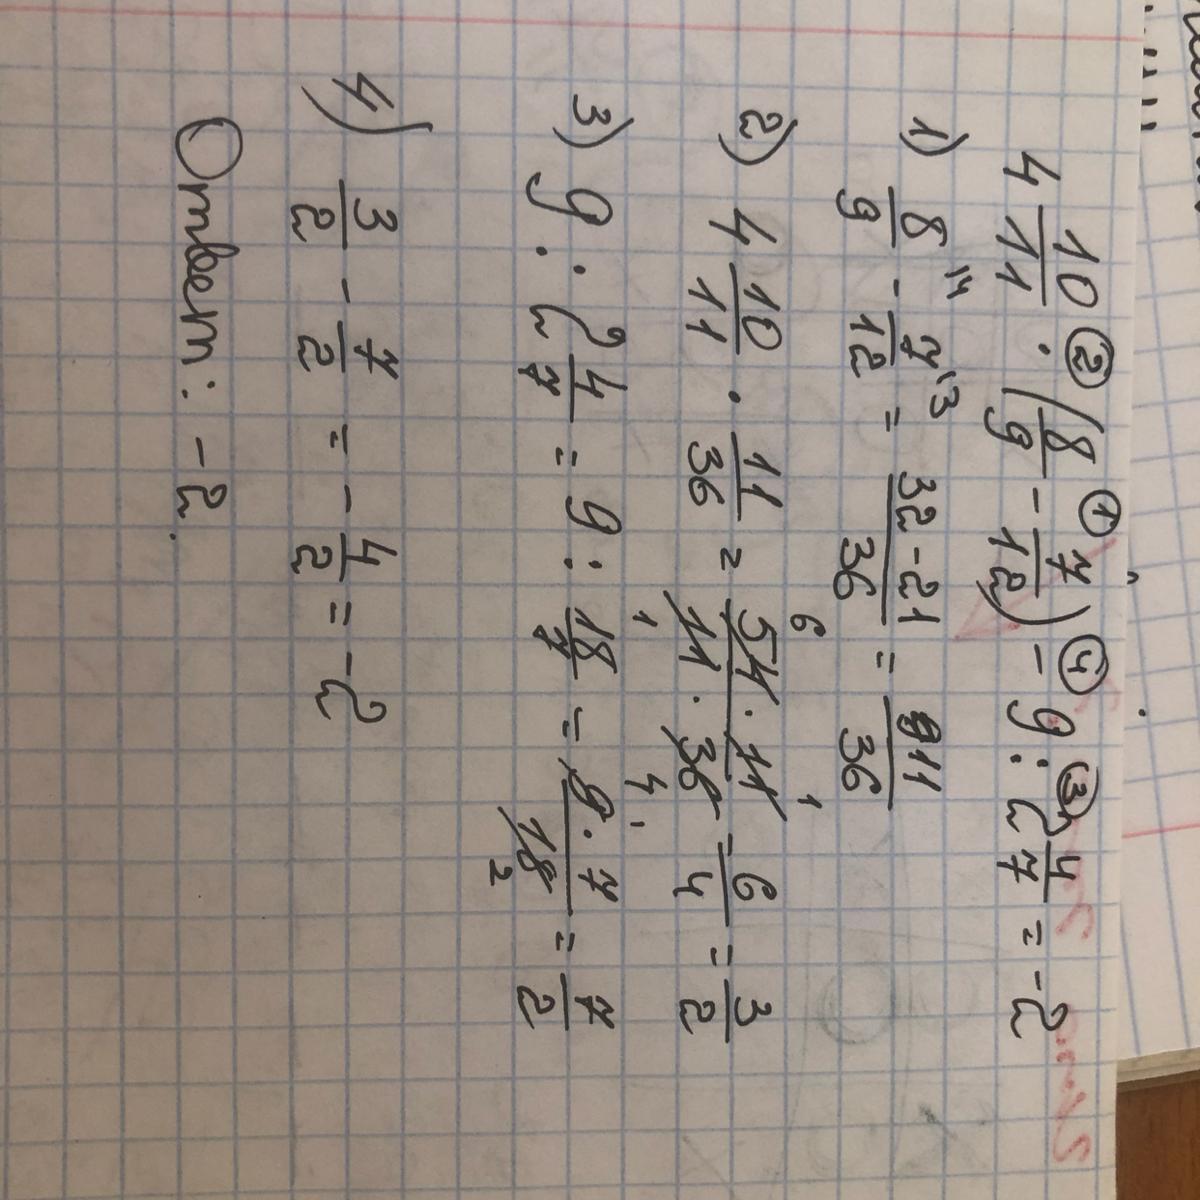 4 10/11 · (8/9 - 7/12) - 9 : 2 4/7 = -2
② ① ④ ③
1) 8/9 - 7/12 = (32-21)/36 = 11/36
2) 4 10/11 · 11/36 = (54·11)/(11·36) = 6/4 = 3/2
3) 9 : 2 4/7 = 9 : 18/7 = (9·7)/18 = 7/2
4) 3/2 - 7/2 = -4/2 = -2
Ответ: -2.